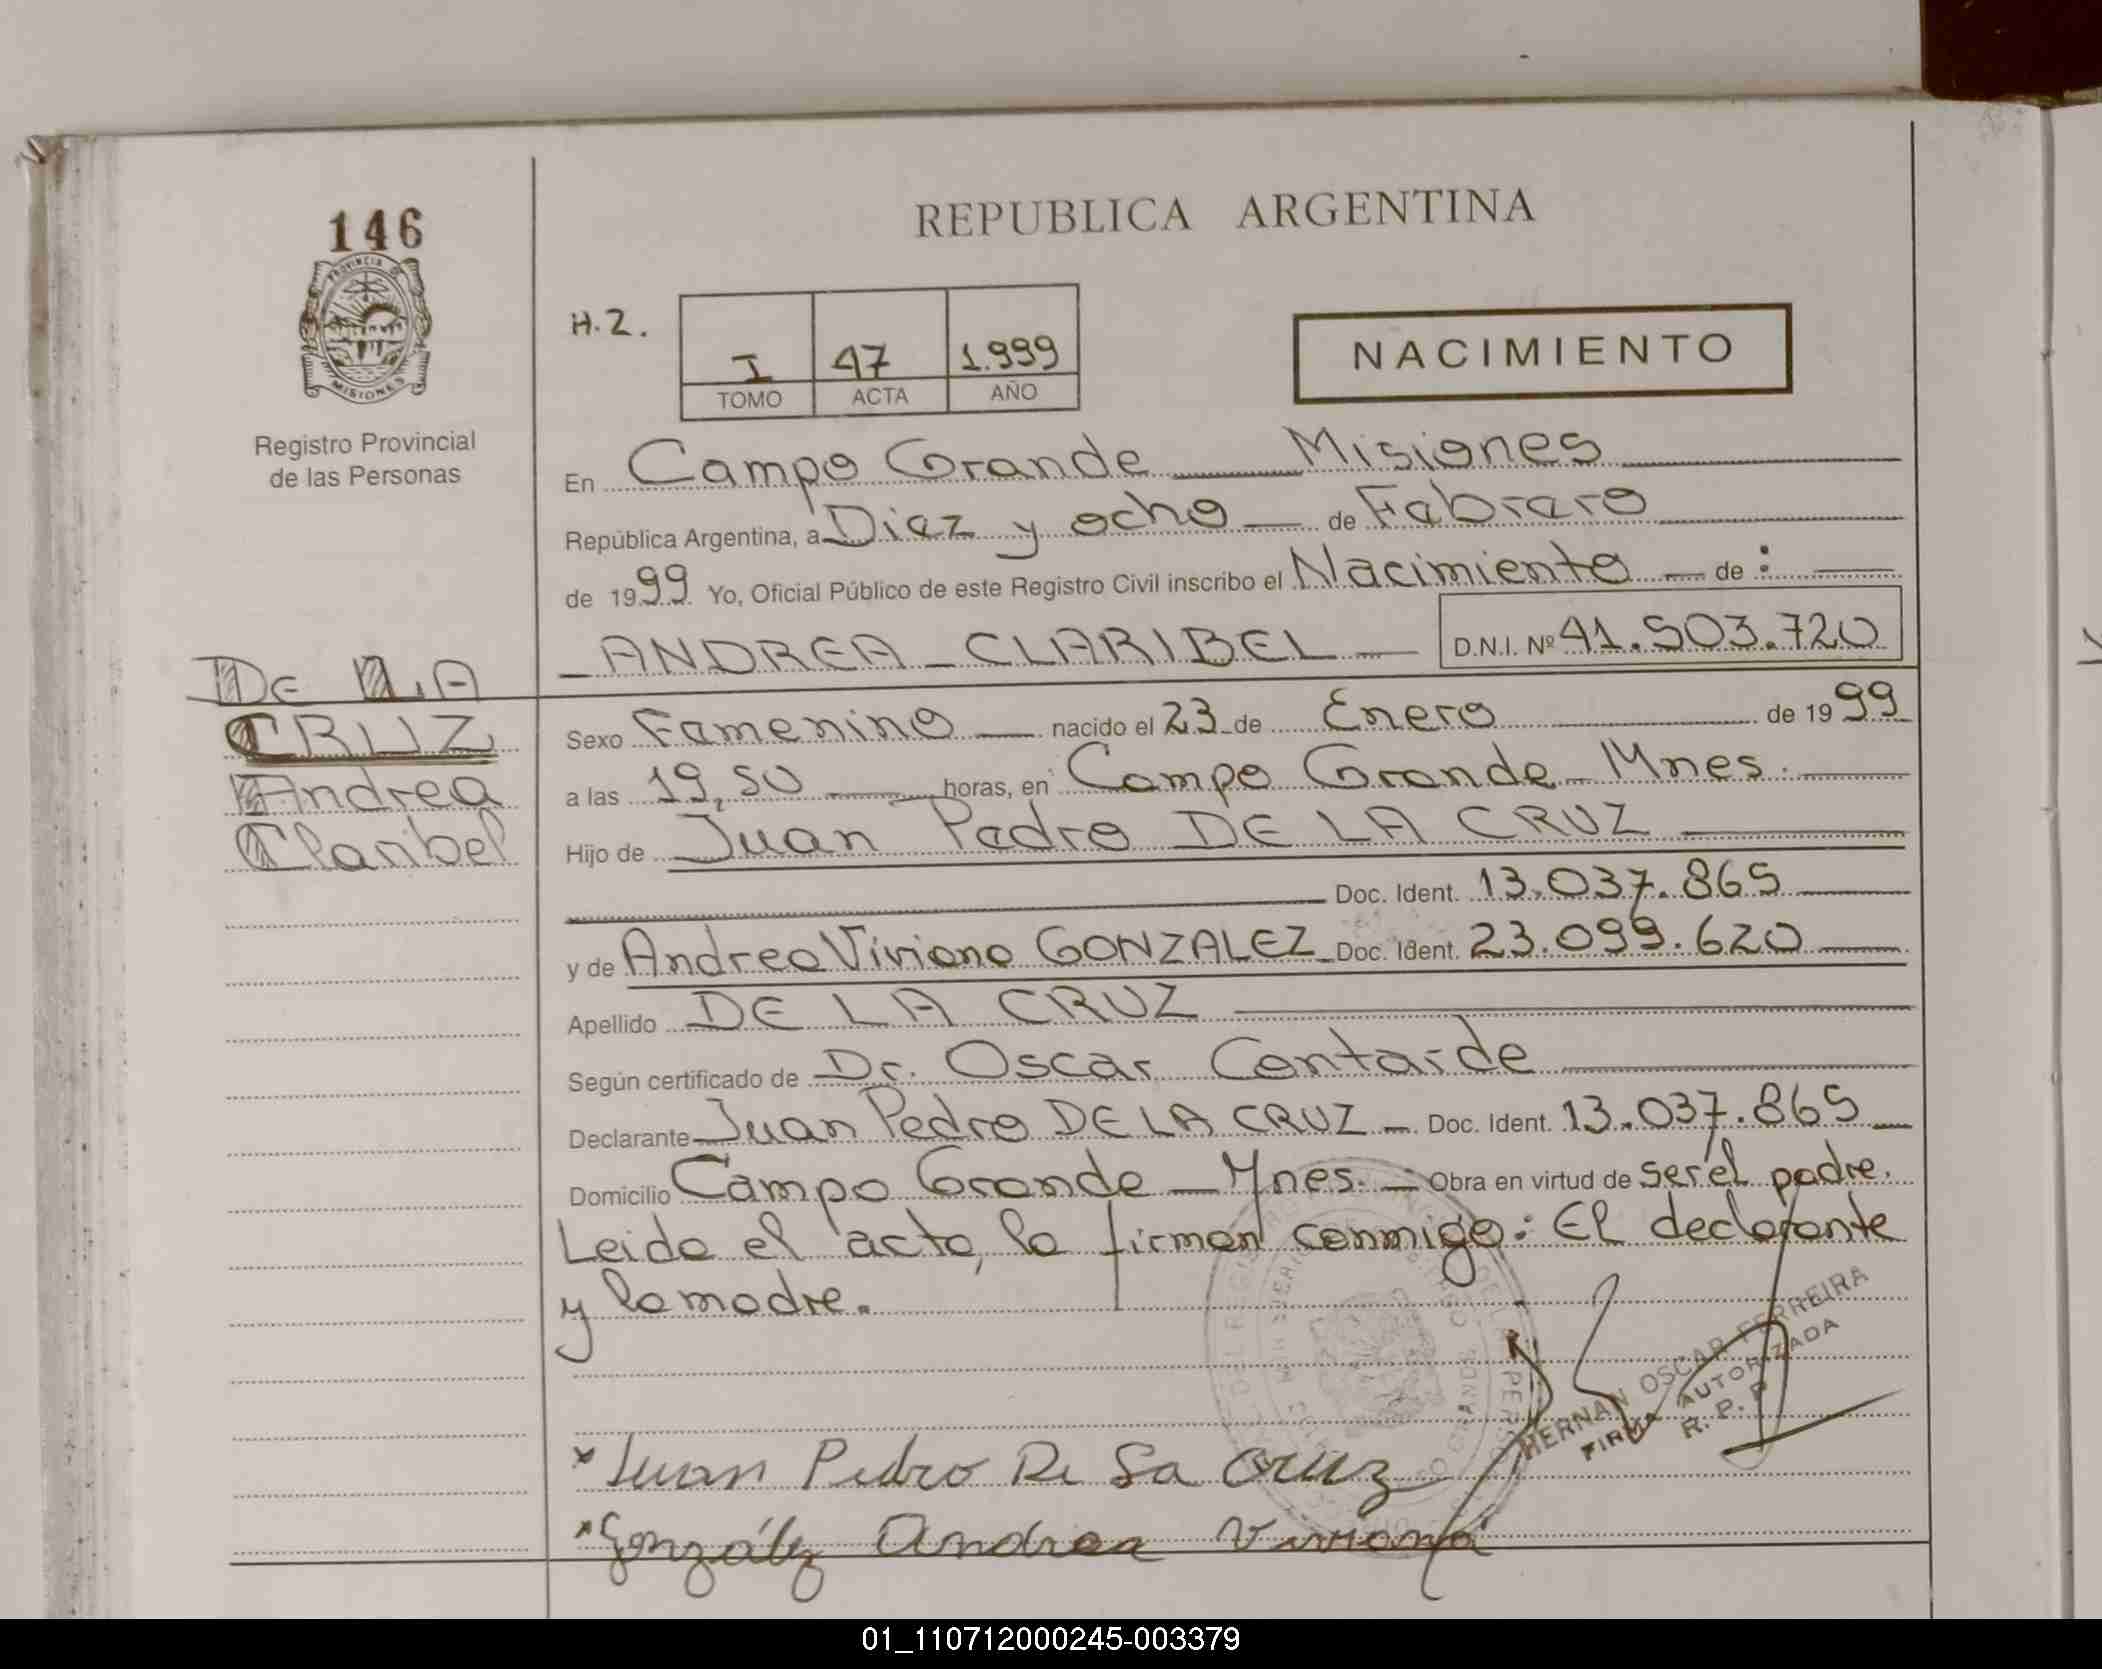 146
PROVINCIA DE
MISIONES
Registro Provincial
de las Personas
REPUBLICA ARGENTINA
H.2.
I 47 1.999
TOMO ACTA AÑO
NACIMIENTO
En Campo Grande Misiones
República Argentina, a Diez y ocho de Febrero
de 1999 Yo, Oficial Público de este Registro Civil inscribo el Nacimiento de :
ANDREA CLARIBEL D.N.I. Nº 41.503.720
DE LA
CRUZ
Andrea
Claribel
Sexo Femenino nacido el 23 de Enero de 1999
a las 19,50 horas, en Campo Grande Mnes.
Hijo de Juan Pedro DE LA CRUZ
Doc. Ident. 13.037.865
y de Andrea Viviana GONZALEZ Doc. Ident. 23.099.620
Apellido DE LA CRUZ
Según certificado de Dr. Oscar Contarde
Declarante Juan Pedro DE LA CRUZ Doc. Ident. 13.037.865
Domicilio Campo Grande Mnes. Obra en virtud de ser el padre.
Leida el acta, la firman conmigo: El declarante
y la madre.
HERNAN OSCAR FERREIRA
FIRMA AUTORIZADA
R.P.P
x Juan Pedro De La Cruz
x González Andrea Viviana
01_110712000245-003379